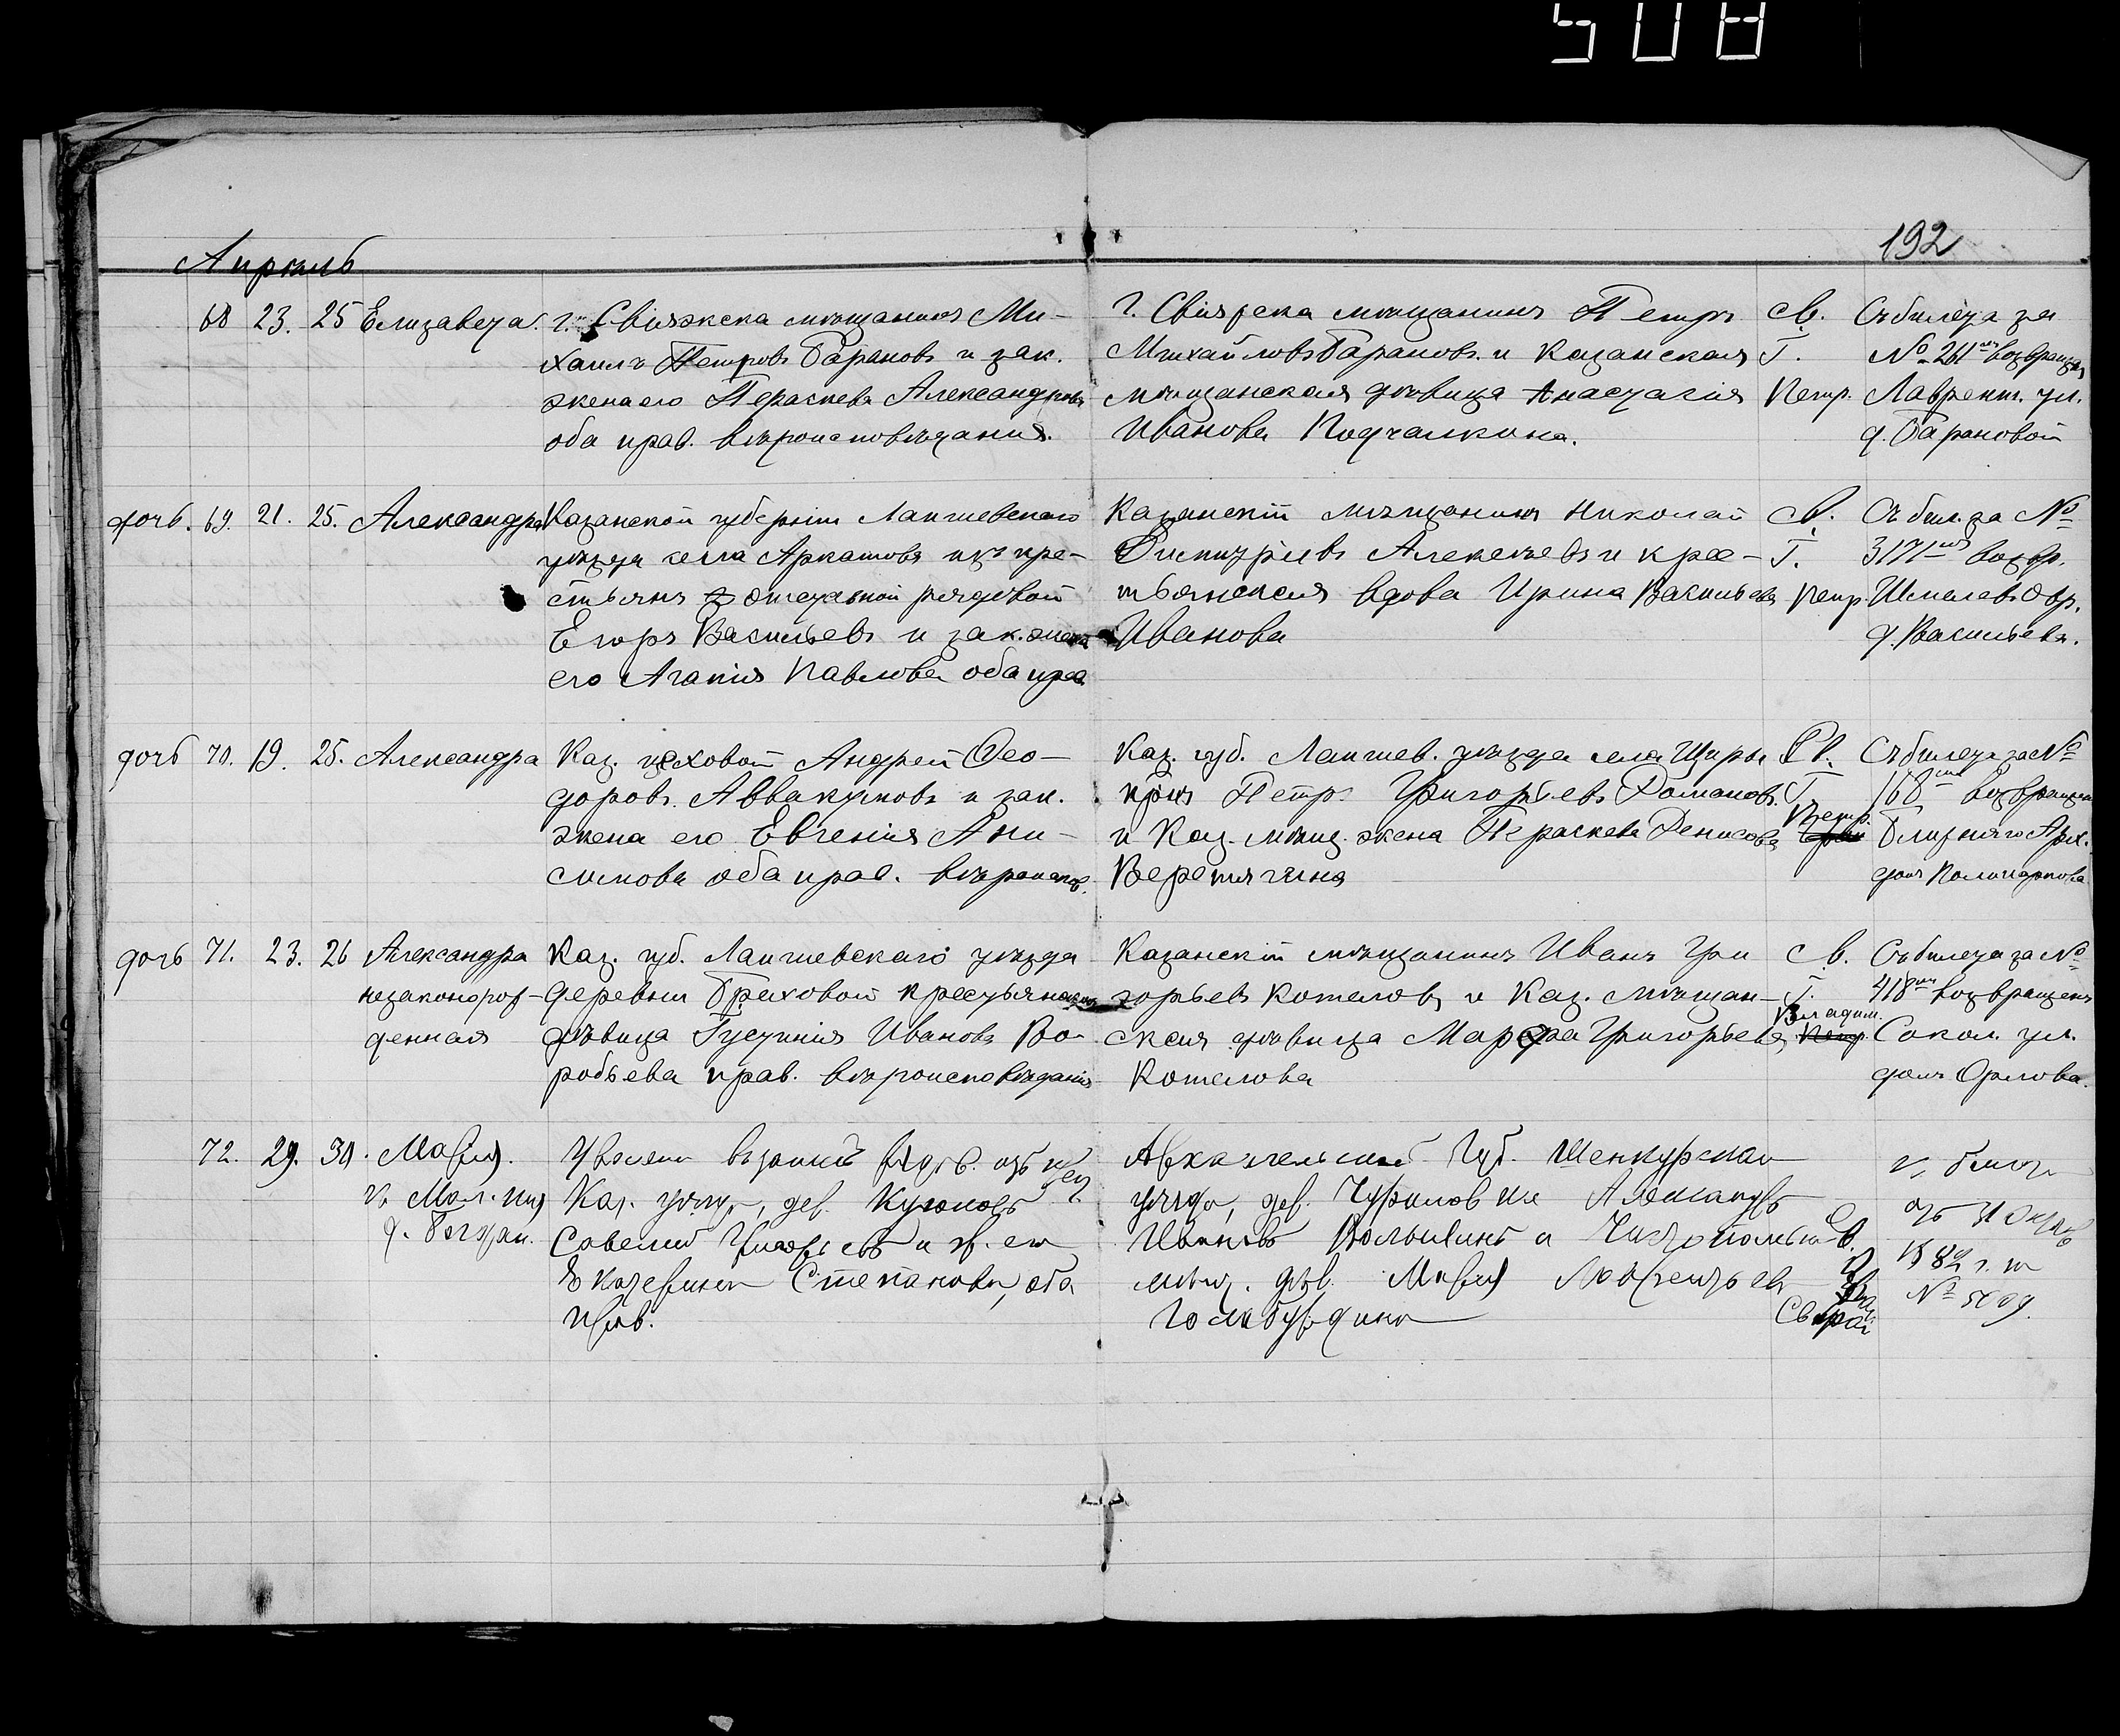 508
192
Апрѣль
68 23. 25 Елизавета. г. Свіяжска мѣщанинъ Ми-
хаилъ Петровъ Барановъ и зак.
жена его Параскева Александрова
оба прав. вѣроисповѣданія.
г. Свіяжска мѣщанинъ Петръ
Михайловъ Барановъ и Казанская
мѣщанская дѣвица Анастасія
Иванова Подчалкина.
Св.
Т.
Петр.
Съ билета за
№ 261мъ возвращен
Лаврент. ул.
д. Барановой
дочь. 69. 21. 25. Александра Казанской губерніи Лаишевскаго
уѣзда села Аркатова изъ кре-
стьянъ отставной рядовой
Егоръ Васильевъ и зак. жена
его Агапія Павлова оба прав
Казанскій мѣщанинъ Николай
Димитріевъ Алексѣевъ и крес-
тьянская вдова Ирина Васильева
Иванова
Св.
Т.
Петр.
Съ бил. за №
317мъ возвр.
Шмелев овр.
д. Васильева.
дочь 70. 19. 25. Александра Каз. цеховой Андрей Ѳео-
доровъ Аввакумовъ и зак.
жена его Евгенія Ани-
симова оба прав. вѣроиспов.
Каз. губ. Лаишев. уѣзда села Шуры
крнъ Петръ Григорьевъ Романовъ
и Каз. мѣщ. жена Параскева Денисова
Веретягина
Св.
Т.
Петр.
Съ билета за №
168мъ возвращен
Ближняго Арх.
домъ Поликарпова
дочь 71. 23. 26 Александра
незаконорож-
денная
Каз. губ. Лаишевскаго уѣзда
деревни Греховой крестьянская
дѣвица Іустинія Иванова Во-
робьева прав. вѣроисповѣданія
Казанскій мѣщанинъ Иванъ Гри
горьевъ Котеловъ и Каз. мѣщан-
ская дѣвица Марфа Григорьева
Котелова
Св.
Т.
Владим.
Петр.
Съ билета за №
418мъ возвращенъ
Сокол. ул.
домъ Орлова.
72. 29. 30. Марія.
д. Богдан.
Каз. уѣзда, дер. Куюковъ
Савелій Григорьевъ и ж. его
Екатерина Степанова, оба
прав.
Архангельской Губ. Шенкурскаго
уѣзда, дер. Чуриловской Александръ
Ивановъ и Чистопольская
мѣщ. дѣв. Марія Лаврентьева
Св.
№ 5009.